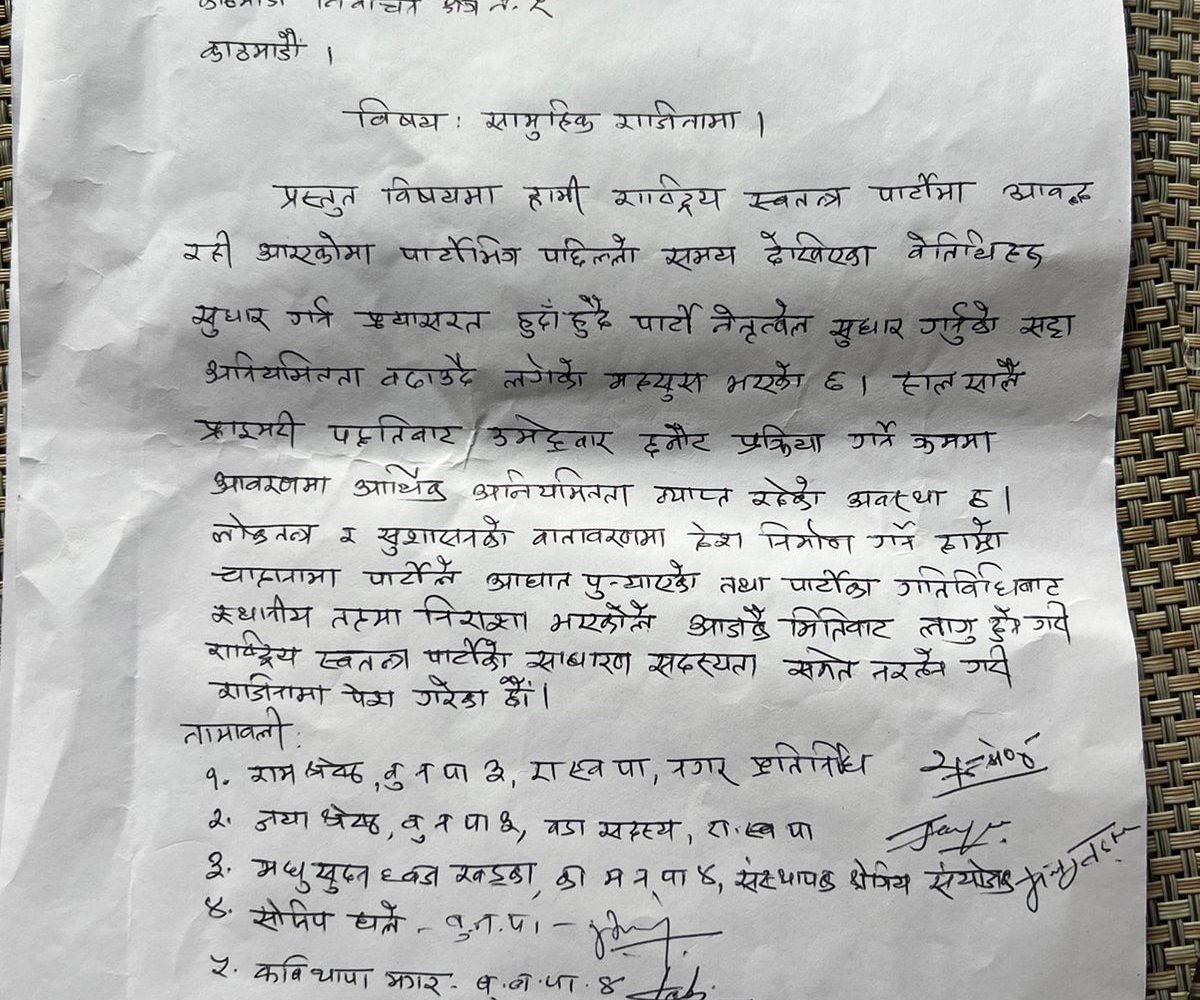 काठमाडौं निर्वाचन क्षेत्र नं. २
काठमाडौं ।
विषय : सामुहिक राजिनामा ।
प्रस्तुत विषयमा हामी राष्ट्रिय स्वतन्त्र पार्टीमा आवद्ध
रही आएकोमा पार्टीभित्र पछिल्लो समय देखिएका वेतिथिहरु
सुधार गर्न प्रयासरत हुदाँहुदै पार्टी नेतृत्वले सुधार गर्नुको सट्टा
अनियमितता वढाउदै लगेको महसुस भएको छ । हाल सालै
प्राइमरी पद्दतिवाट उमेद्वार छनौट प्रक्रिया गर्ने क्रममा
आवरणमा आर्थिक अनियमितता व्याप्त रहेको अवस्था छ ।
लोकतन्त्र र सुशासनको वातावरणमा देश निर्माण गर्ने हाम्रो
चाहानामा पार्टीले आघात पुर्‍याएको तथा पार्टीका गतिविधिबाट
स्थानीय तहमा निराशा भएकोले आजकै मितिवाट लागु हुने गरी
राष्ट्रिय स्वतन्त्र पार्टीको साधारण सदस्यता समेत नरहने गरी
राजिनामा पेश गरेका छौं ।
नामावली :
१. राम श्रेष्ठ, वु न पा ३, रा स्व पा, नगर प्रतिनिधि
२. जया श्रेष्ठ, वु न पा ३, वडा सदस्य, रा. स्व पा
३. मधुसुदन ध्वज खड्का, का म न पा ४, संस्थापक क्षेत्रिय संयोजक
४. सोविप घले - वु. न. पा. -
५. कवि थापा मगर - बु. न. पा. ४